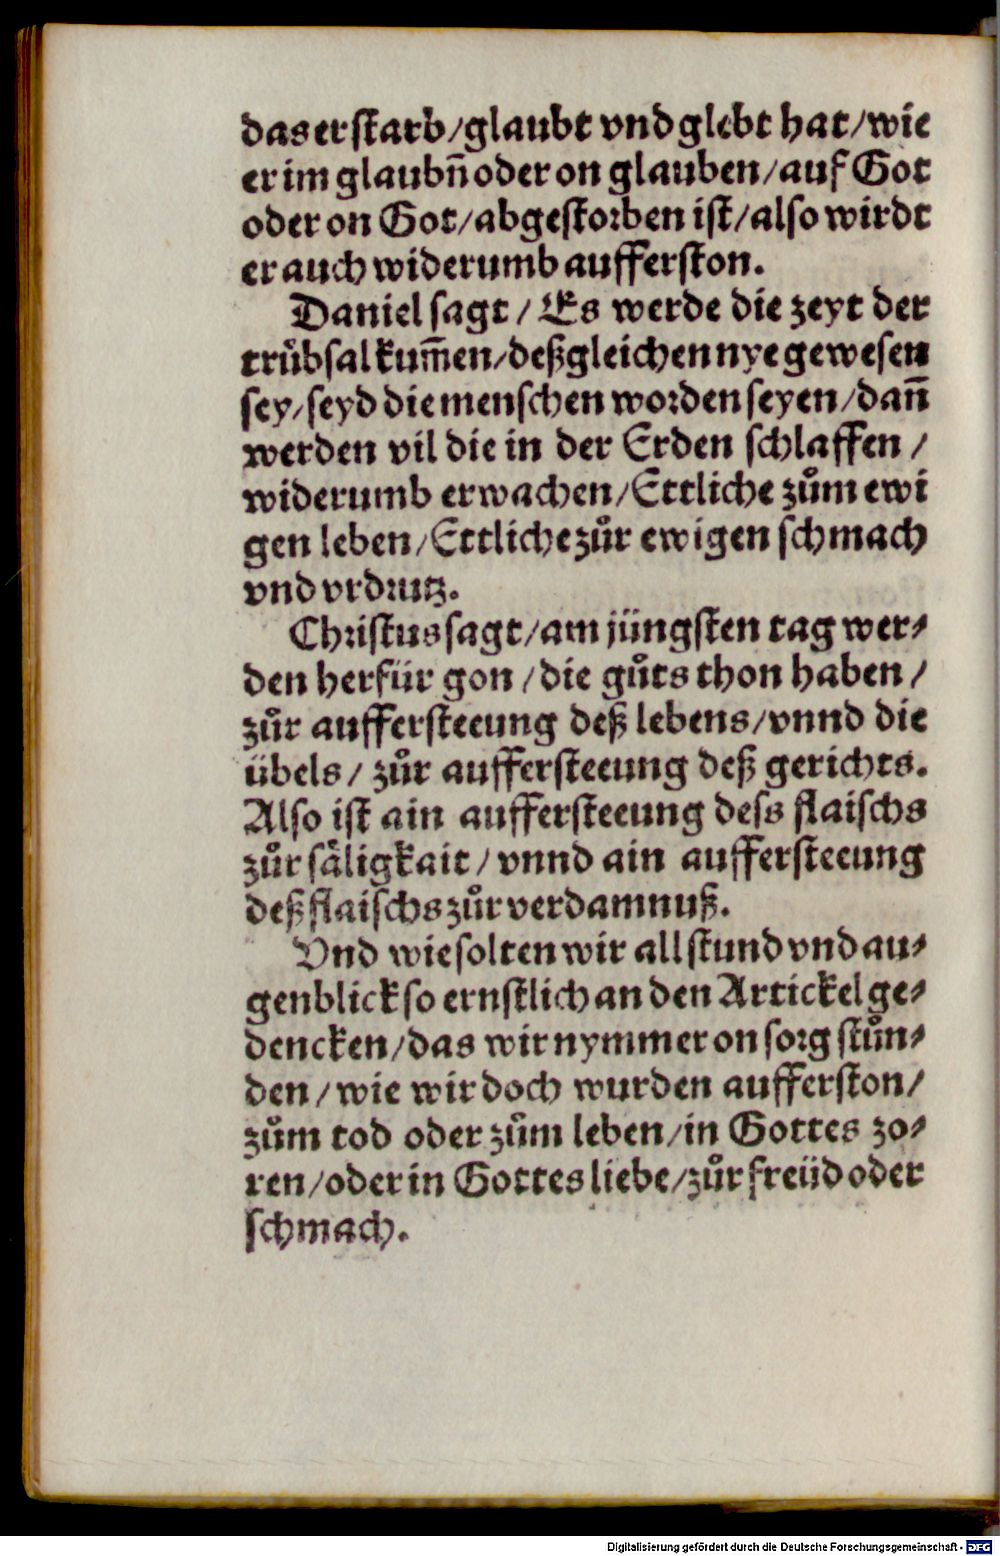 das er starb/glaubt vnd glebt hat/wie
er im glaubn̄ oder on glauben/auf Got
oder on Got/abgestorben ist/also wirdt
er auch widerumb aufferston.
Daniel sagt / Es werde die zeyt der
trůbsal kum̄en/deßgleichen nye gewesen
sey/seyd die menschen worden seyen/dan̄
werden vil die in der Erden schlaffen /
widerumb erwachen/Ettliche zům ewi
gen leben/Ettliche zůr ewigen schmach
vnd vrdrutz.
Christus sagt/am jüngsten tag wer⸗
den herfür gon /die gůts thon haben /
zůr auffersteeung deß lebens/vnnd die
übels/ zůr auffersteeung deß gerichts.
Also ist ain auffersteeung dess flaischs
zůr sa̋ligkait/vnnd ain auffersteeung
deß flaischs zůr verdamnuß.
Vnd wie solten wir all stund vnd au⸗
genblick so ernstlich an den Artickel ge⸗
dencken/das wir nymmer on sorg stůn⸗
den/wie wir doch wurden aufferston/
zům tod oder zům leben/in Gottes zo⸗
ren/oder in Gottes liebe/zůr freüd oder
schmach.
Digitalisierung gefördert durch die Deutsche Forschungsgemeinschaft - DFG